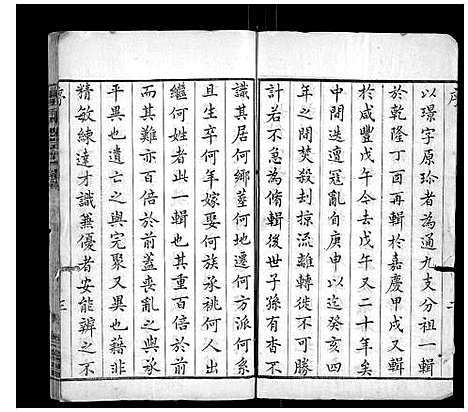 序
以璟字原珍者為通九支分祖一輯
於乾隆丁酉再輯於嘉慶甲戌又輯
於咸豐戊午今去戊午又二十年矣
中間迭遭冦亂自庚申以迄癸亥四
年之間焚殺刦掠流離轉徙不可勝
計若不急為脩輯後世子孫有杳不
識其居何鄉塟何地還何方派何系
且生卒何年嫁娶何族承祧何人出
繼何姓者此一輯也其重百倍於前
而其難亦百倍於前蓋喪亂之與承
平異也遺亡之與完聚又異也藉非
精敏練達才識兼優者安能辨之不
序
二
三